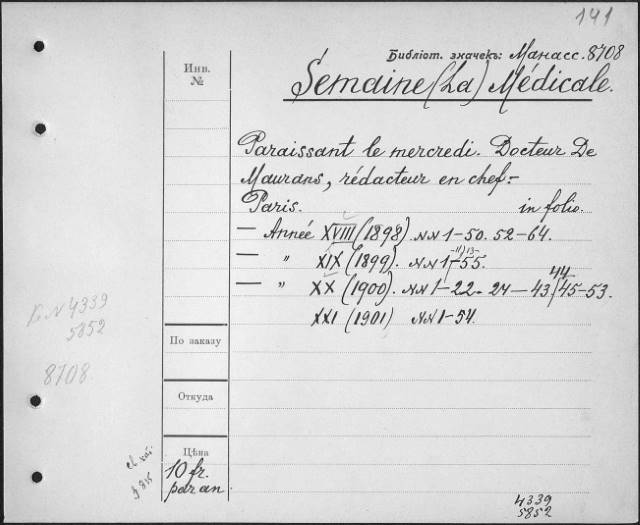 141
Библіот. значекъ: Манасс. 8708
Инв.
№
Semaine (La) Médicale.
Paraissant le mercredi. Docteur De
Maurans, rédacteur en chef.-
Paris. in folio.
— Année XVIII (1898). NN 1-50. 52-64.
— " XIX (1899). NN 1-11/13-55.
— " XX (1900). NN 1-22. 24-43/44/45-53.
XXI (1901) NN 1-54.
N 4339
5852
8708
По заказу
Откуда
Цѣна
10 fr.
par an
4339
5852